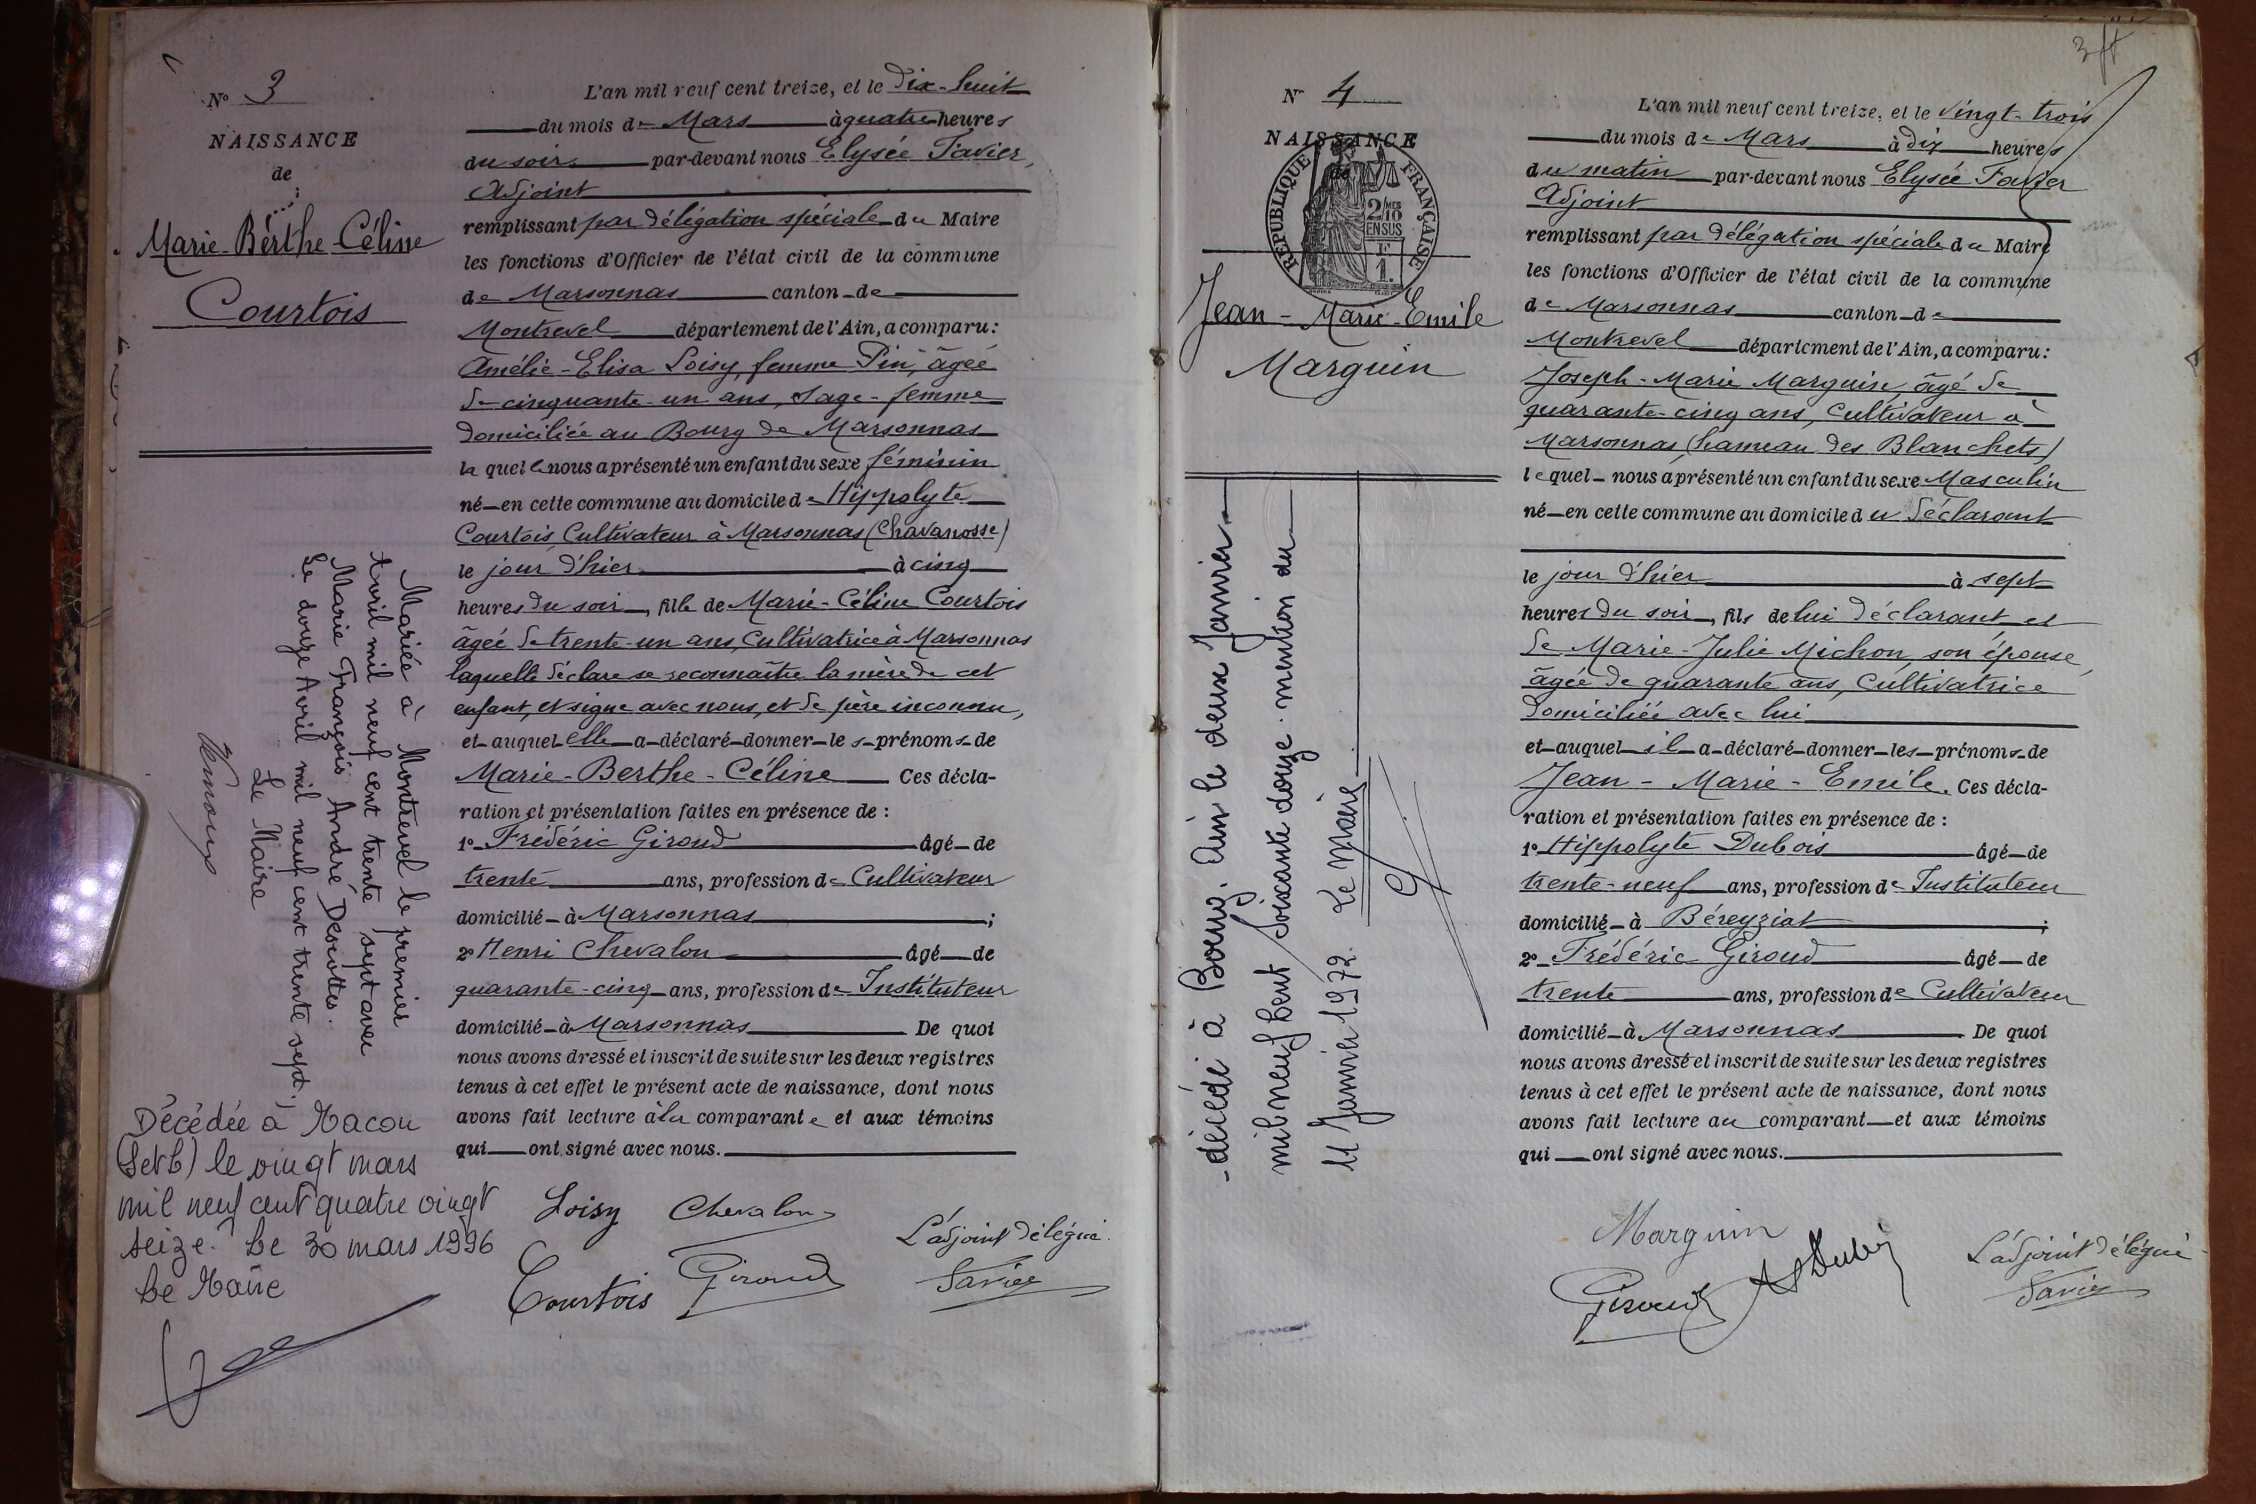 N° 3
NAISSANCE
de
Marie-Berthe-Céline
Courtois
Mariée à Montrevel le premier
Avril mil neuf cent trente sept avec
Marie François André Descottes.
Le douze Avril mil neuf cent trente sept.
Le Maire
Décédée à Macon
(S et L) le vingt mars
mil neuf cent quatre vingt
seize. Le 30 mars 1996
Le Maire
L'an mil neuf cent treize, et le dix-huit
du mois de Mars à quatre heures
du soir par-devant nous Elysée Favier,
Adjoint
remplissant par délégation spéciale du Maire
les fonctions d'Officier de l'état civil de la commune
de Marsonnas canton de
Montrevel département de l'Ain, a comparu:
Amélie-Elisa Loisy, femme Pin, âgée
de cinquante-un ans, sage-femme
domiciliée au Bourg de Marsonnas
laquelle nous a présenté un enfant du sexe féminin
né en cette commune au domicile de Hippolyte
Courtois Cultivateur à Marsonnas (Chavanosse)
le jour d'hier à cinq
heures du soir, fille de Marie-Céline Courtois
âgée de trente-un ans, Cultivatrice à Marsonnas
laquelle déclare se reconnaître la mère de cet
enfant, et signe avec nous, et de père inconnu,
et auquel elle a déclaré donner les prénoms de
Marie-Berthe-Céline Ces décla-
ration et présentation faites en présence de :
1° Frédéric Giroud âgé de
trente ans, profession de Cultivateur
domicilié à Marsonnas ;
2° Henri Chevalon âgé de
quarante-cinq ans, profession de Instituteur
domicilié à Marsonnas De quoi
nous avons dressé et inscrit de suite sur les deux registres
tenus à cet effet le présent acte de naissance, dont nous
avons fait lecture à la comparante et aux témoins
qui ont signé avec nous.
Loisy Chevalon
L'adjoint délégué.
Courtois Giroud Favier
N° 4
NAISSANCE
de
RÉPUBLIQUE FRANÇAISE
2/10
EN SUS
1 F.
Jean-Marie-Emile
Marguin
décédé à Bourg. Ain le deux Janvier
mil neuf cent soixante douze. mention du
11 Janvier 1972. Le Maire
L'an mil neuf cent treize, et le vingt-trois
du mois de Mars à dix heures
du matin par-devant nous Elysée Favier
Adjoint
remplissant par délégation spéciale du Maire
les fonctions d'Officier de l'état civil de la commune
de Marsonnas canton de
Montrevel département de l'Ain, a comparu:
Joseph-Marie Marguin, âgé de
quarante-cinq ans, Cultivateur à
Marsonnas (hameau des Blanchets)
lequel nous a présenté un enfant du sexe Masculin
né en cette commune au domicile du déclarant
le jour d'hier à sept
heures du soir, fils de lui déclarant et
de Marie-Julie Michon son épouse,
âgée de quarante ans, Cultivatrice
domiciliée avec lui
et auquel il a déclaré donner les prénoms de
Jean-Marie-Emile. Ces décla-
ration et présentation faites en présence de :
1° Hippolyte Dubois âgé de
trente-neuf ans, profession de Instituteur
domicilié à Béreyziat ;
2° Frédéric Giroud âgé de
trente ans, profession de Cultivateur
domicilié à Marsonnas De quoi
nous avons dressé et inscrit de suite sur les deux registres
tenus à cet effet le présent acte de naissance, dont nous
avons fait lecture au comparant et aux témoins
qui ont signé avec nous.
Marguin
L'adjoint délégué
Giroud Favier